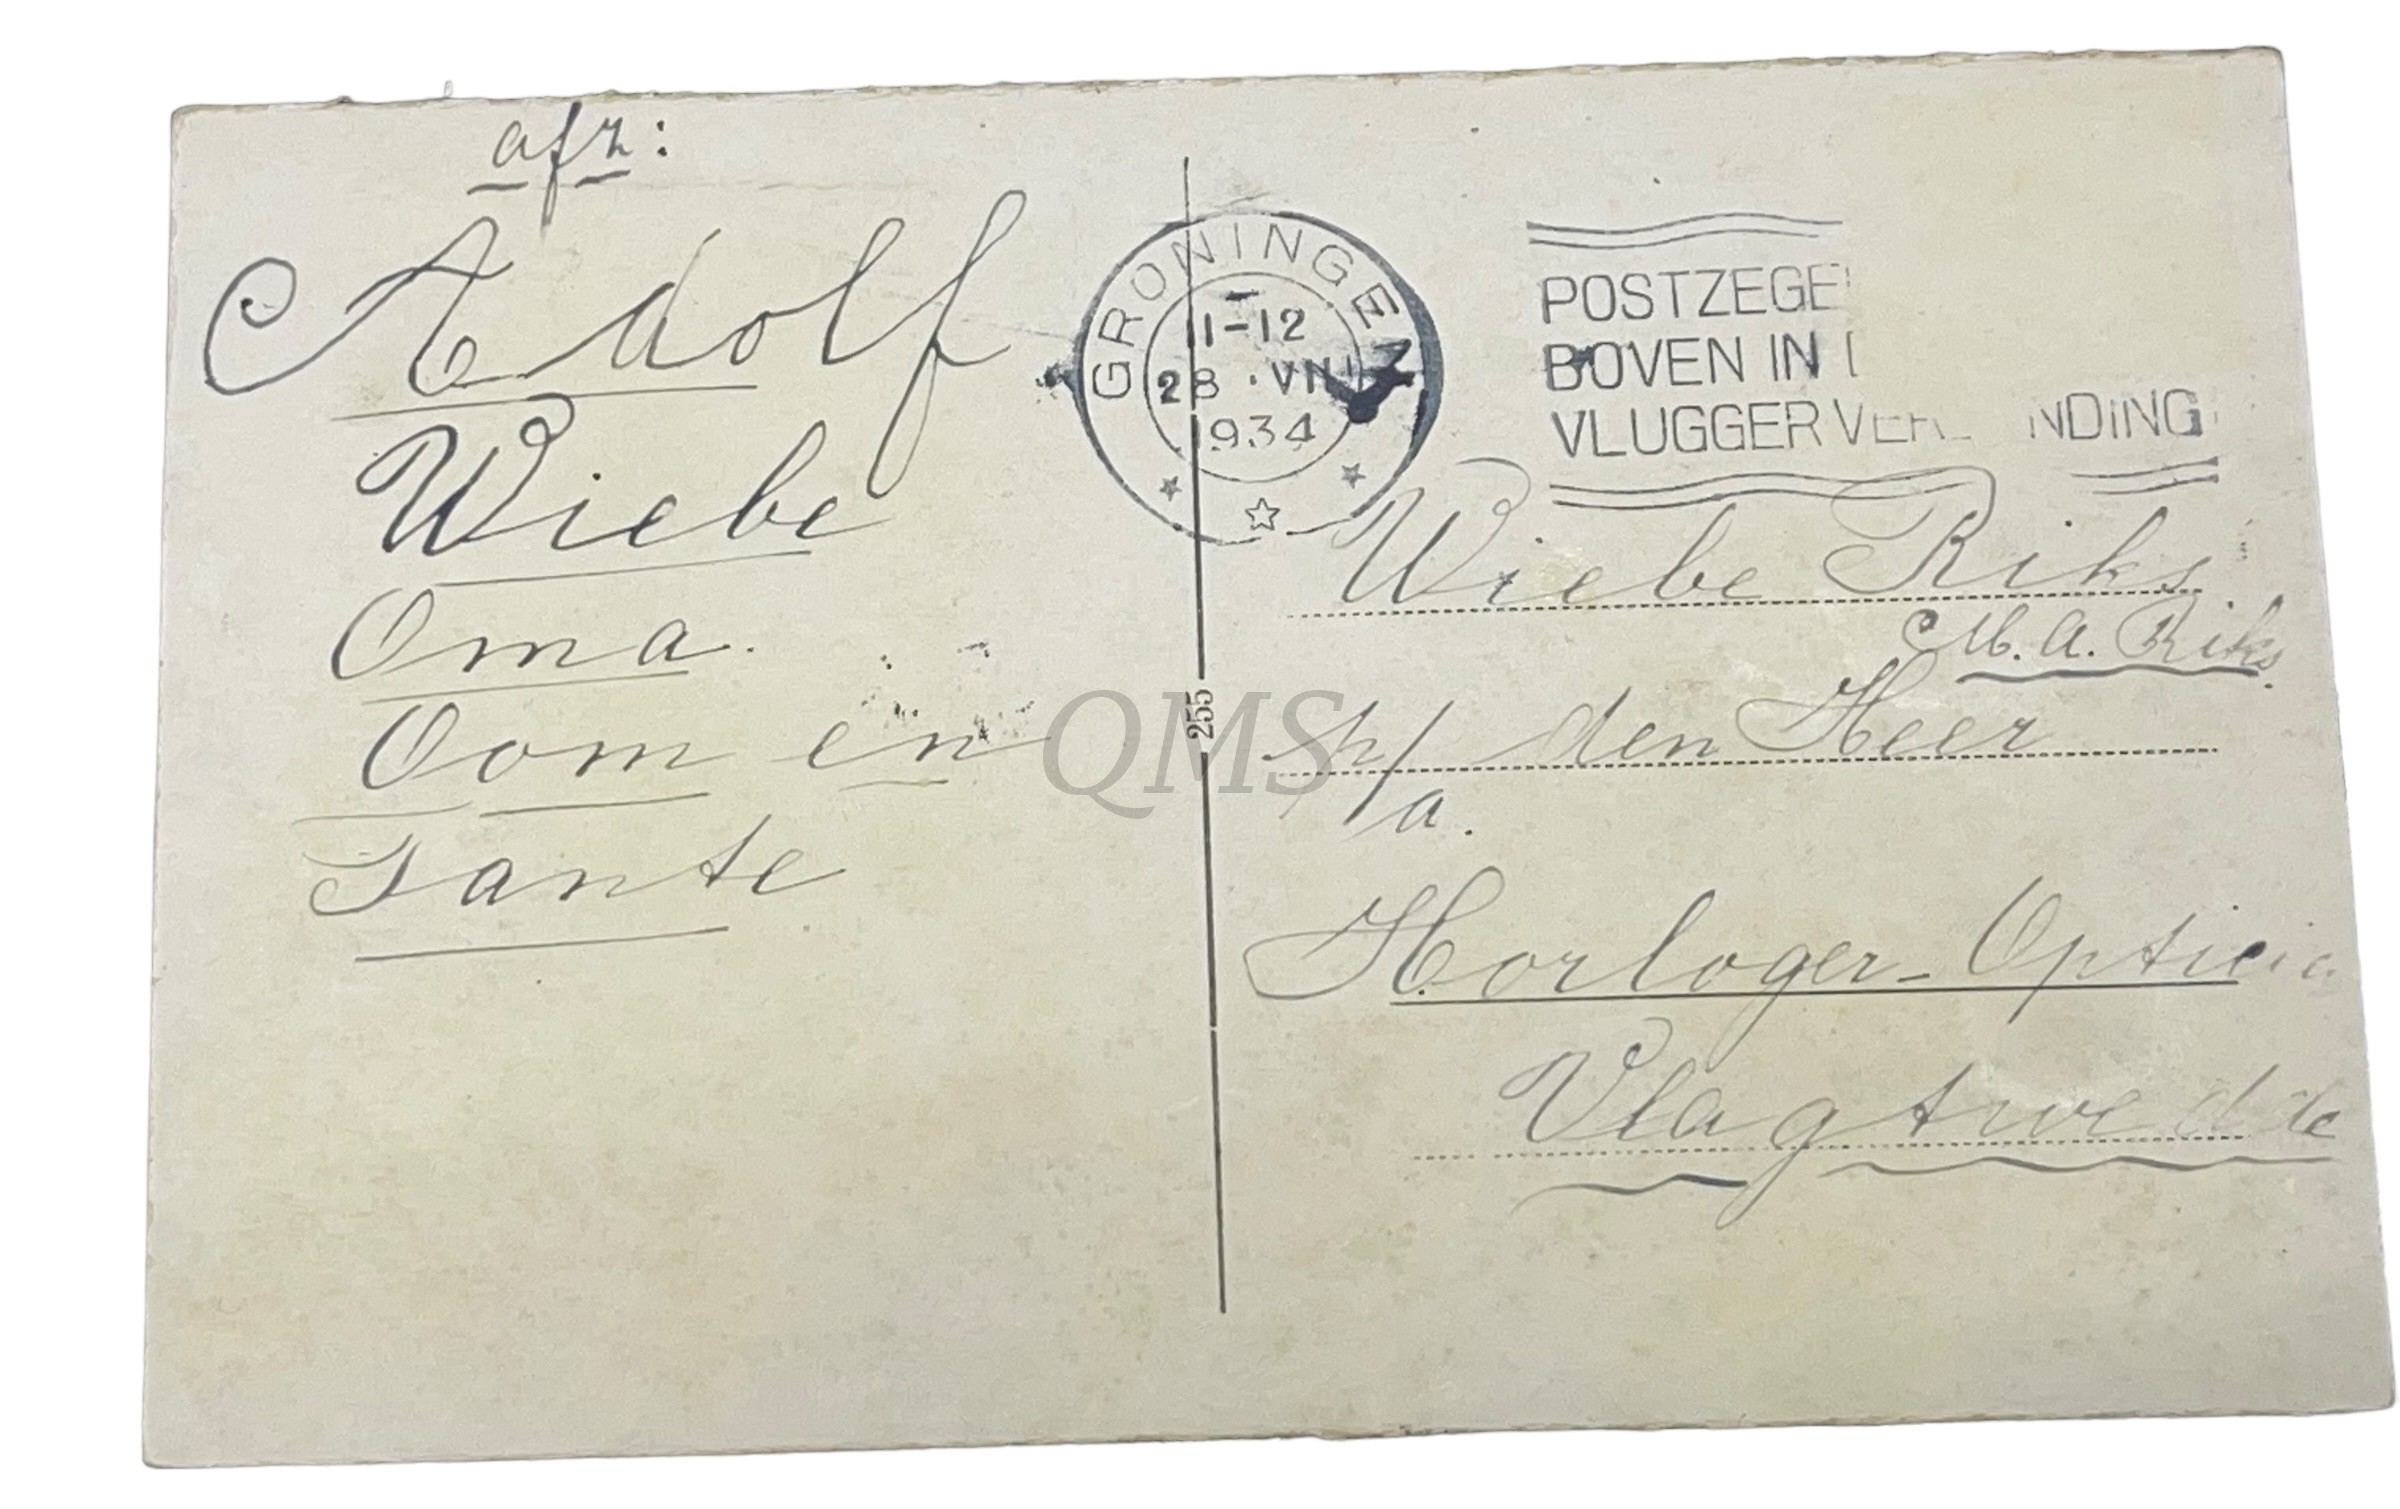 afz:
Adolf
Wiebe
Oma.
Oom en
Tante
GRONINGEN
11-12
28 · VIII
1934
POSTZEGE
BOVEN IN
VLUGGER VER NDING
Wiebe Riks
M. A. Riks.
p/a. den Heer
Horloger - Opticia
Vlagtwedde
255
QMS